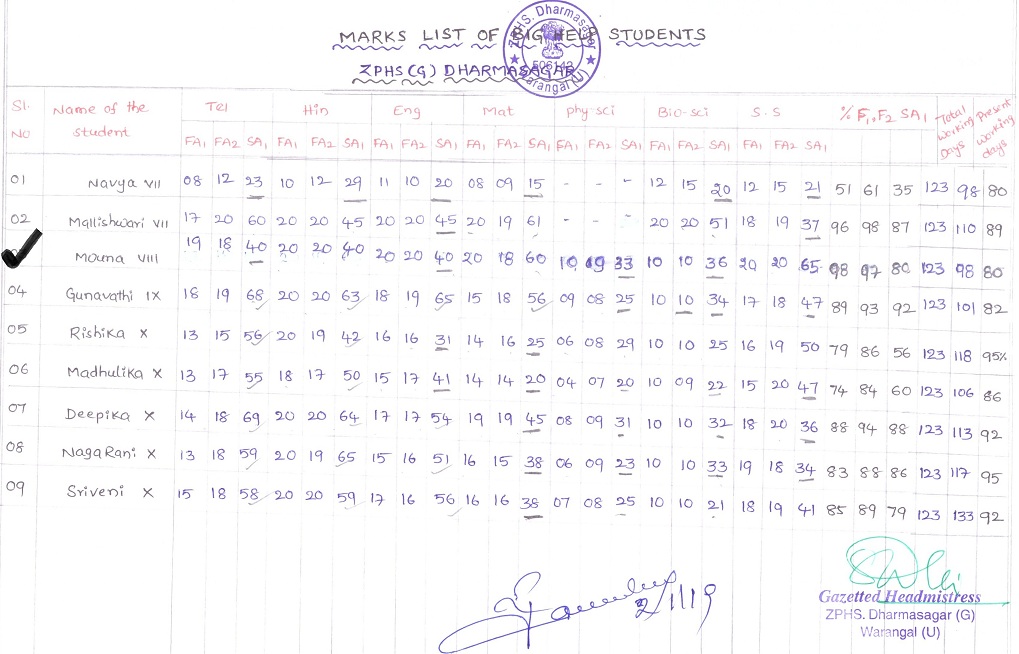 MARKS LIST OF BIG HELP STUDENTS
ZPHS (G) DHARMASAGAR
ZPHS. Dharmasagar
506142
Warangal (U)
Sl. NO Name of the student Tel Hin Eng Mat phy-sci Bio-sci S.S % F1, F2 SA1 Total working Days Present working days
FA1 FA2 SA1 FA1 FA2 SA1 FA1 FA2 SA1 FA1 FA2 SA1 FA1 FA2 SA1 FA1 FA2 SA1 FA1 FA2 SA1
01 Navya VII 08 12 23 10 12 29 11 10 20 08 09 15 - - - 12 15 20 12 15 21 51 61 35 123 98 80
02 Mallishwari VII 17 20 60 20 20 45 20 20 45 20 19 61 - - - 20 20 51 18 19 37 96 98 87 123 110 89
Mouna VIII 19 18 40 20 20 40 20 20 40 20 18 60 10 09 33 10 10 36 20 20 65 98 97 80 123 98 80
04 Gunavathi IX 18 19 68 20 20 63 18 19 65 15 18 56 09 08 25 10 10 34 17 18 47 89 93 92 123 101 82
05 Rishika X 13 15 56 20 19 42 16 16 31 14 16 25 06 08 29 10 10 25 16 19 50 79 86 56 123 118 95%
06 Madhulika X 13 17 55 18 17 50 15 17 41 14 14 20 04 07 20 10 09 22 15 20 47 74 84 60 123 106 86
07 Deepika X 14 18 69 20 20 64 17 17 54 19 19 45 08 09 31 10 10 32 18 20 36 88 94 88 123 113 92
08 NagaRani X 13 18 59 20 19 65 15 16 51 16 15 38 06 09 23 10 10 33 19 18 34 83 88 86 123 117 95
09 Sriveni X 15 18 58 20 20 59 17 16 56 16 16 38 07 08 25 10 10 21 18 19 41 85 89 79 123 133 92
2/1/19
Gazetted Headmistress
ZPHS. Dharmasagar (G)
Warangal (U)